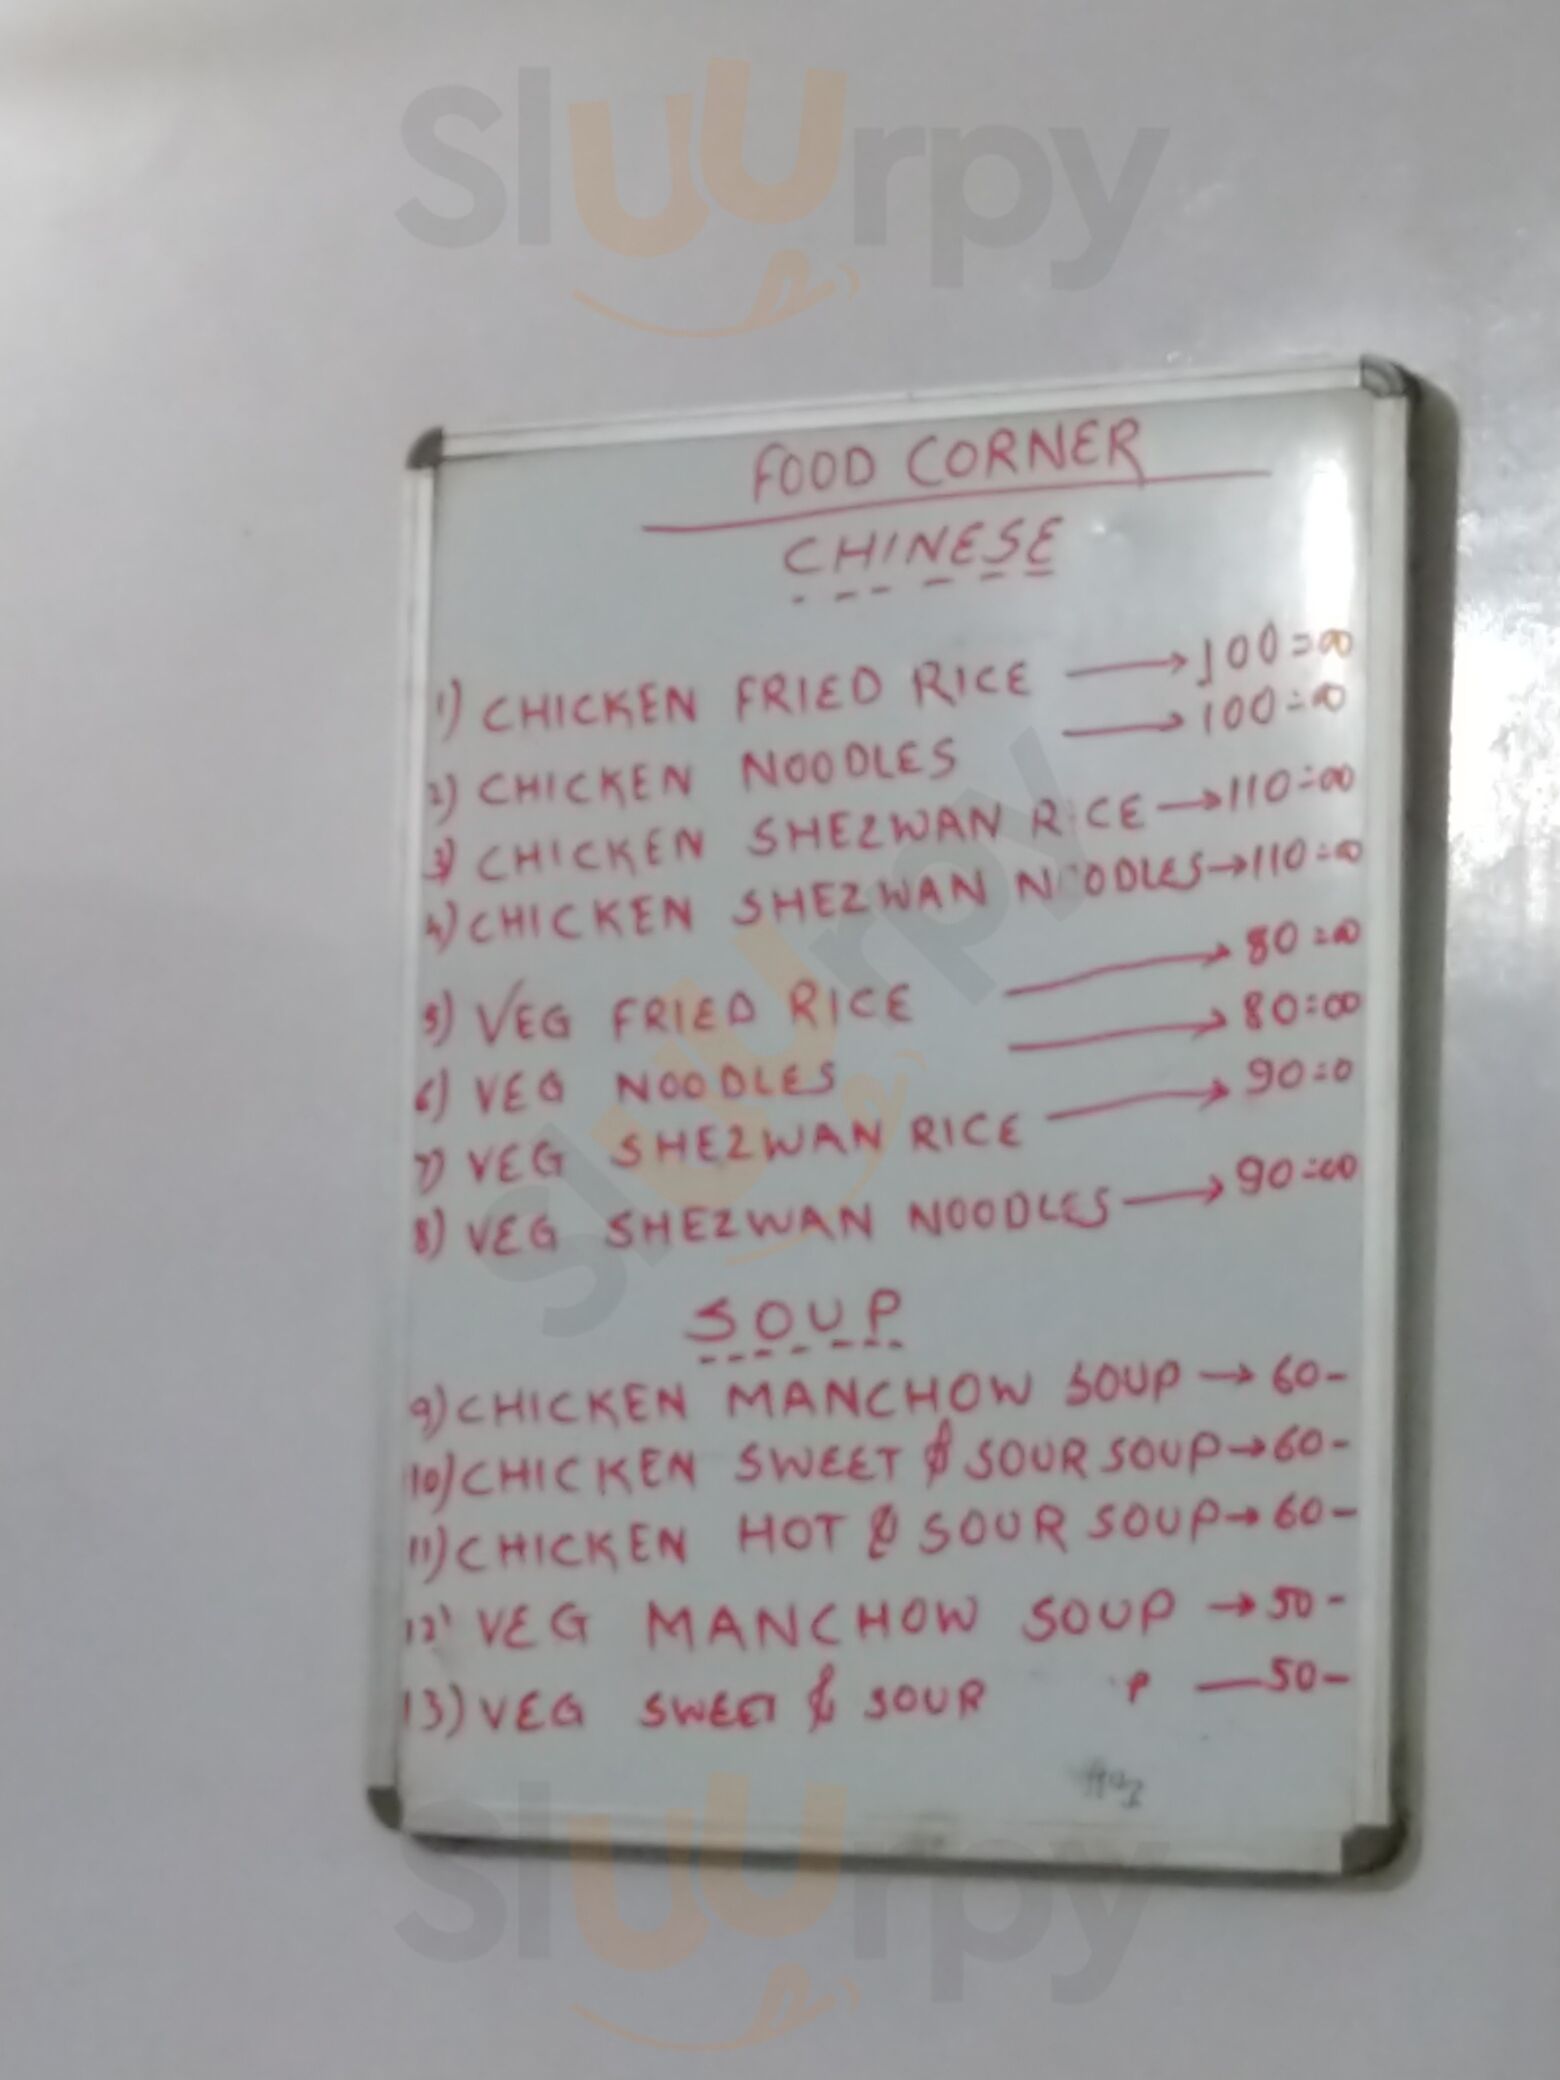 Sluurpy
FOOD CORNER
CHINESE
1) CHICKEN FRIED RICE → 100=00
2) CHICKEN NOODLES → 100=00
3) CHICKEN SHEZWAN RICE → 110=00
4) CHICKEN SHEZWAN NOODLES → 110=00
5) VEG FRIED RICE → 80=00
6) VEG NOODLES → 80=00
7) VEG SHEZWAN RICE → 90=0
8) VEG SHEZWAN NOODLES → 90=00
Sluurpy
SOUP
9) CHICKEN MANCHOW SOUP → 60-
10) CHICKEN SWEET & SOUR SOUP → 60-
11) CHICKEN HOT & SOUR SOUP → 60-
12) VEG MANCHOW SOUP → 50-
13) VEG SWEET & SOUR P — 50-
Sluurpy